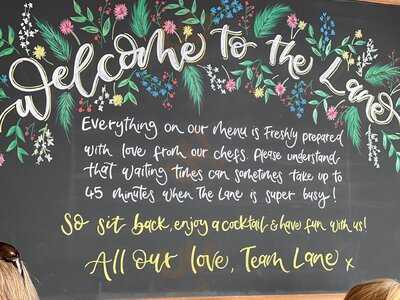 Welcome to the Lane
Everything on our menu is Freshly prepared
with love from our chefs. Please understand
that waiting times can sometimes take up to
45 minutes when The Lane is super busy!
So sit back, enjoy a cocktail & have fun with us!
All our love, Team Lane x